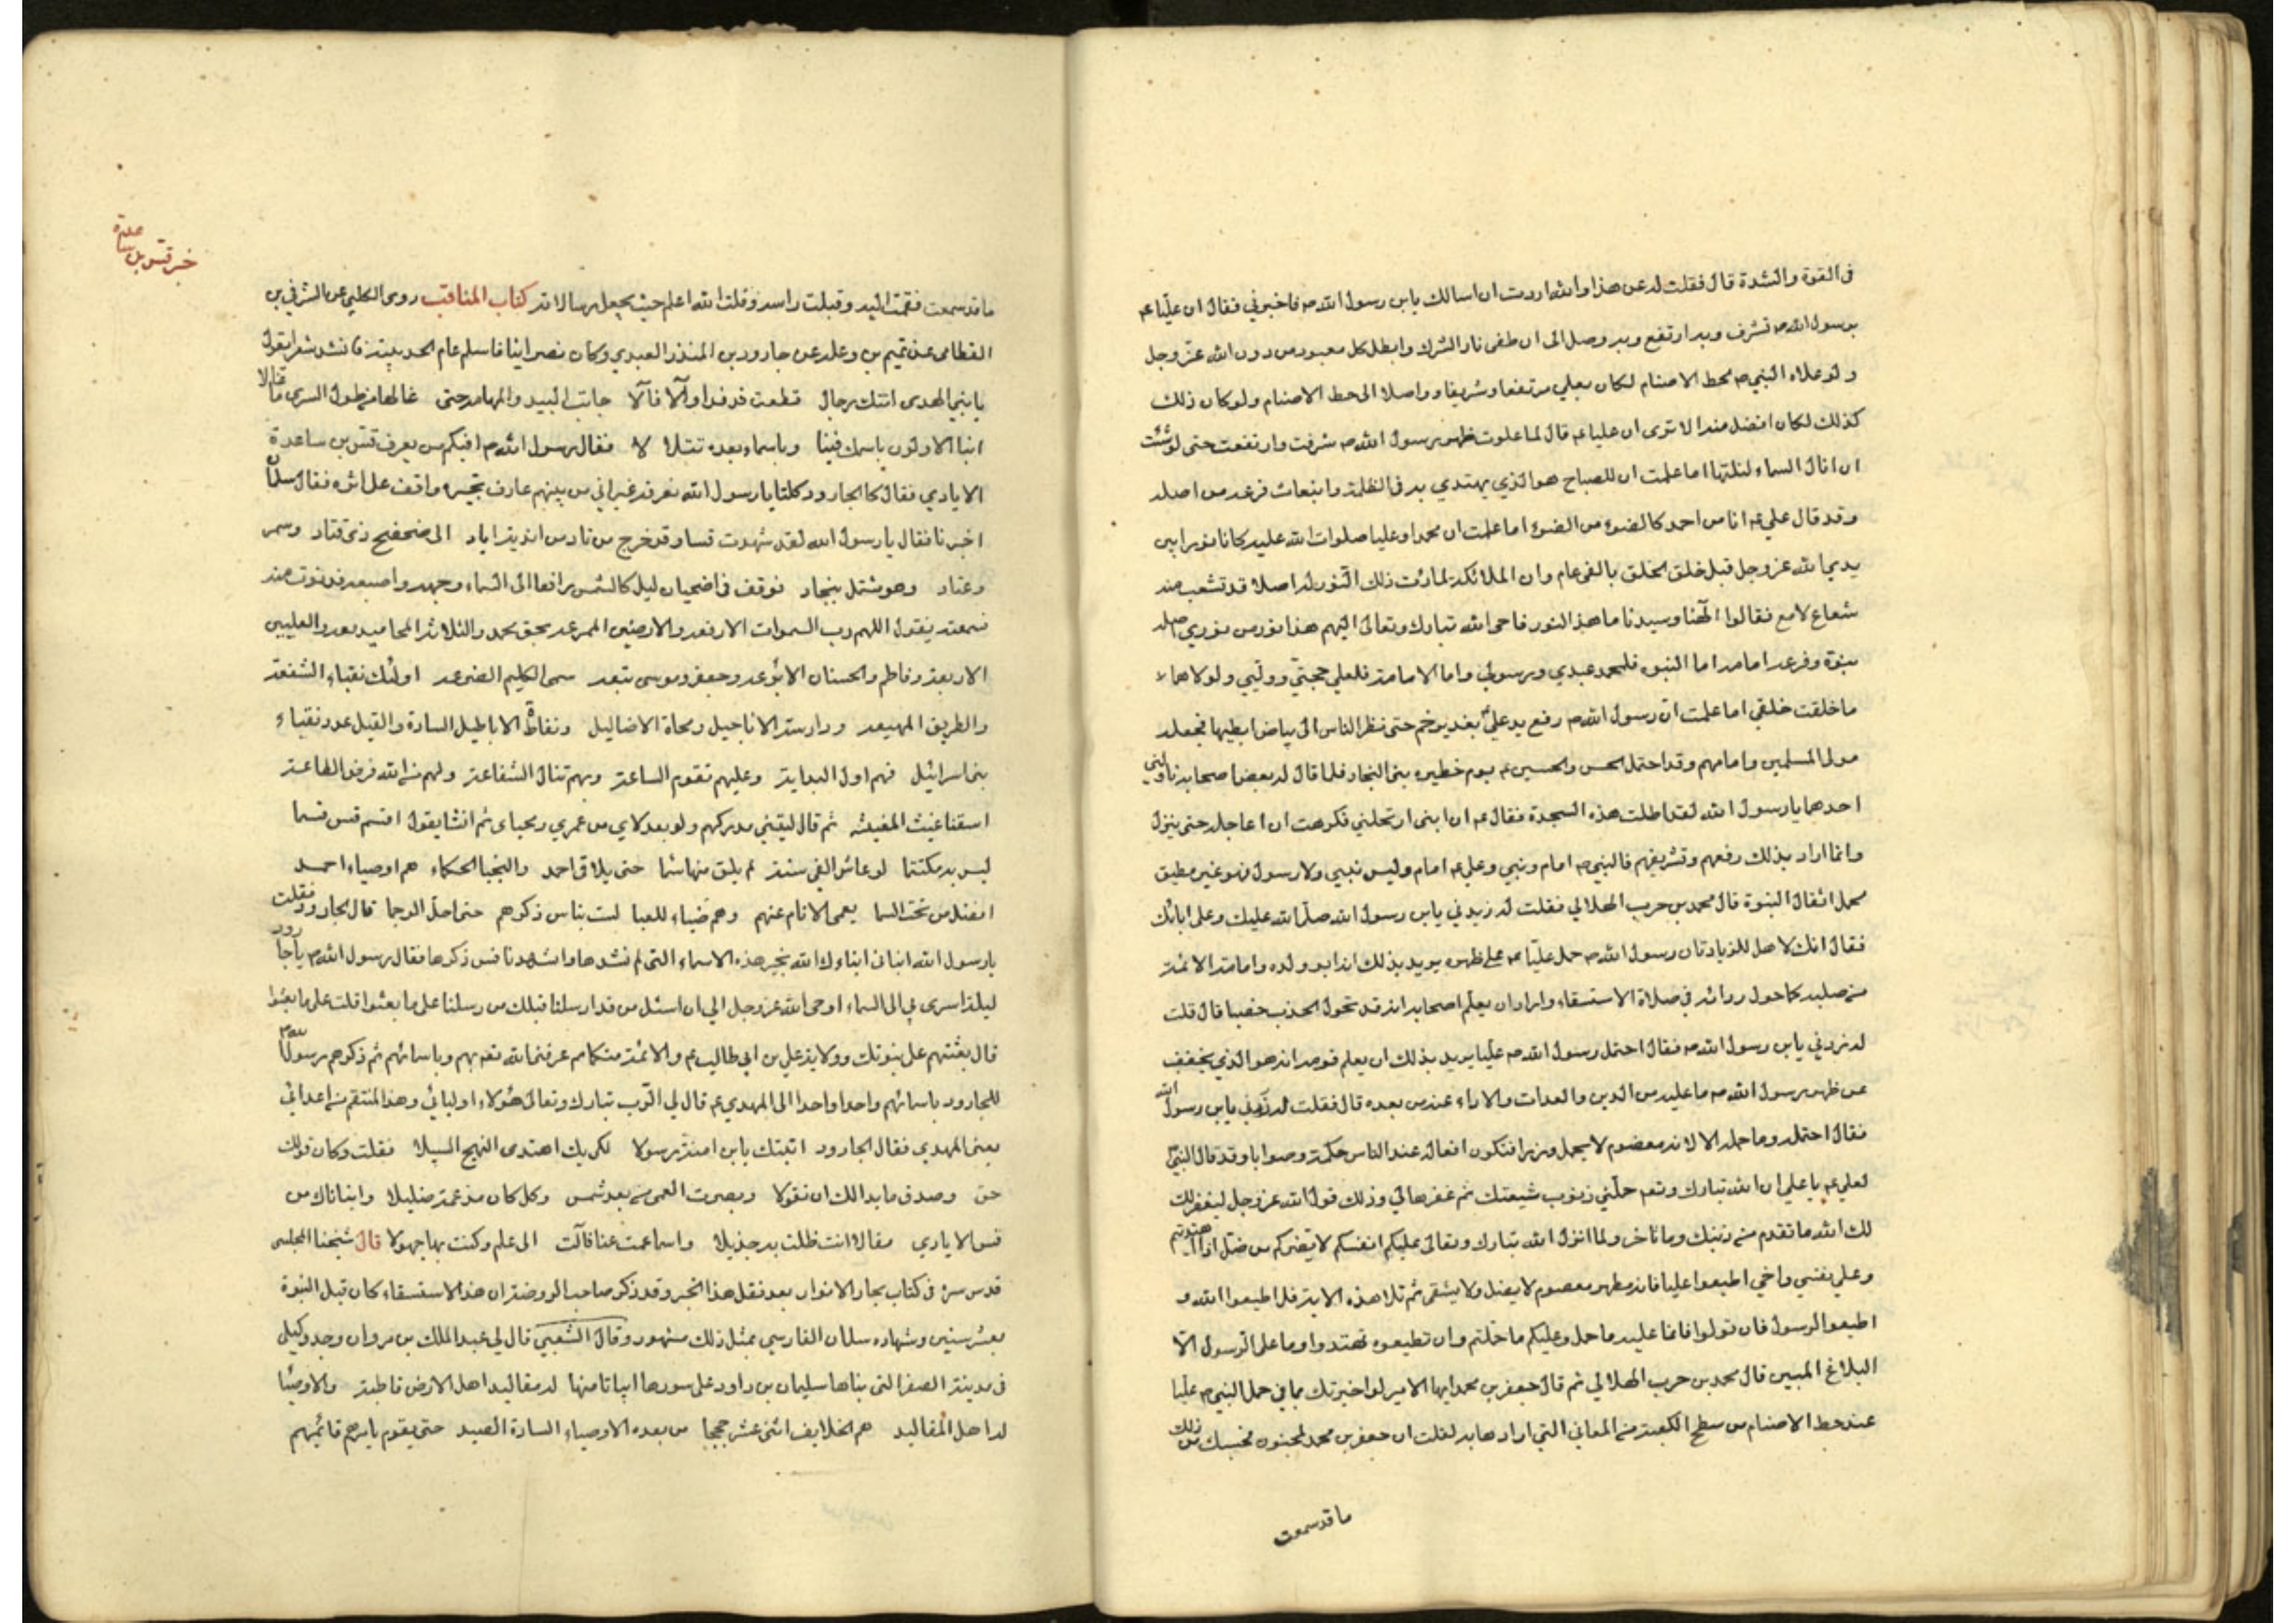 فى القوة والشدة قال فقلت له عن هذا والله اردت ان اسالك يابن رسول الله ص فاخبرني فقال ان عليّا ع
برسول الله ص تشرف وبه ارتفع وبه وصل الى ان طفى نار الشرك وابطل كل معبود من دون الله عزّ وجل
ولو علاه النبي ص لحط الاصنام لكان بعلي مرتفعا وشريفا وواصلا الى حط الاصنام ولو كان ذلك
كذلك لكان افضل منه الا ترى ان عليا ع قال لما علوت ظهر رسول الله ص شرفت وارتفعت حتى لو شئت
ان انال السماء لنلتها اما علمت ان المصباح هو الذي يهتدي به فى الظلمة وانبعاث فرعه من اصله
وقد قال علي ع انا من احمد كالضوء من الضوء اما علمت ان محمدا وعليا صلوات الله عليه كانا نورا بين
يدي الله عز وجل قبل خلق الخلق بالفى عام وان الملائكة لما رئت ذلك النور له اصلا قد تشعب منه
شعاع لامع فقالوا الهنا وسيدنا ما هذا النور فاحى الله تبارك وتعالى اليهم هذا نور من نوري اصله
نبوة وفرعه امامه اما النبوه فلمحمد عبدي ورسولي واما الامامة فلعلي حجتي ووليّي ولولاهما
ما خلقت خلقي اما علمت انّ رسول الله ص رفع يد علي بغدير خم حتى نظر الناس الى بياض ابطيها فجعله
مولى المسلمين وامامهم وقد احتمل الحسن والحسين ع يوم خطيره بنى النجار فلما قال له بعض اصحابه ناولني
احدهما يا رسول الله لقد اطلت هذه السجدة فقال ع ان ابنى ارتحلني فكرهت ان اعاجله حتى ينزل
وانما اراد بذلك رفعهم وتشريفهم فالنبي ص امام ونبي وعلي ع امام وليس بنبي ولا رسول فهو غير مطيق
لحمل اثقال النبوة قال محمد بن حرب الهلالي فقلت له زيدني يابن رسول الله صلّى الله عليك وعلى ابائك
فقال انك لاهل للزيادة ان رسول الله ص حمل عليّا ع على ظهره يريد بذلك انه ابو ولده وامامة الائمة
من صلبه كما حول ردائه في صلاة الاستسقاء واراد ان يعلم اصحابه انه قد تحول الجذب خصبا قال قلت
له زدني يابن رسول الله ص فقال احتمل رسول الله ص عليّا يريد بذلك ان يعلم قومه انه هو الذي يخفف
عن ظهر رسول الله ص ما عليه من الدين والعدات والاداء عنه من بعده قال فقلت له زدني يابن رسول الله
فقال احتمله وما حمله الا لانه معصوم لا يحمل وزرا فتكون افعاله عند الناس حكمة وصوابا وقد قال النبيّ
لعلي ع يا علي ان الله تبارك وتعم حمّلني ذنوب شيعتك ثم غفرها لي وذلك قول الله عز وجل ليغفر لك
لك الله ما تقدم من ذنبك وما تاخر ولما انزل الله تبارك وتعالى عليكم انفسكم لا يضركم من ضل اذا اهتديتم
وعلي نفسي واخي اطيعوا عليا فانه مطهر معصوم لا يضل ولا يشقى ثم تلا هذه الاية قل اطيعوا الله و
اطيعوا الرسول فان تولوا فانما عليه ما حمل وعليكم ما حملتم وان تطيعوه تهتدوا وما على الرسول الّا
البلاغ المبين قال محمد بن حرب الهلالي ثم قال جعفر بن محمد ايها الامير لو اخبرتك بما في حمل النبي ص عليّا
عند حط الاصنام من سطح الكعبة من المعاني التي ارادها به لقلت ان جعفر بن محمد لمجنون فحسبك من ذلك
ما قد سمعت
خبر قس بن ساعدة
ما قد سمعت فقمت اليه وقبلت راسه وقلت الله اعلم حيث يجعل رسالاته كتاب المناقب روى الكلبي عن الشرقي بن
القطامى عن تميم بن وعله عن جارود بن المنذر العبدي وكان نصرانيا فاسلم عام الحديبية فانشد شعرا يقول
يا نبي الهدى اتتك رجال قطعت فدفدا والا فالا جابت البيد والمهامه حتى غالها من طول السرى ما غالا
انبا الاولون باسمك فينا وباسماء بعده تتلالا فقال رسول الله ص افيكم من يعرف قس بن ساعدة
الايادي فقال كالجارود كلنا يا رسول الله نعرفه غير اني من بينهم عارف بخبره واقف على اثره فقال سلمان
اخبرنا فقال يا رسول الله لقد شهدت قسا وقد خرج من ناد من اندية اياد الى ضحضح ذى قتاد وسمر
وعتاد وهو مشتمل بنجاد فوقف فى اضحيان ليل كالشمس رافعا الى السماء وجهه واصبعه فدنوت منه
فسمعته يقول اللهم رب السموات الارفعه والارضين الممرعه بحق محمد والثلاثه المحاميد معه والعليين
الاربعة وفاطم والحسنان الابوعه وجعفر وموسى تبعه سمى الكليم الضرعه اولئك نقباء الشفعة
والطريق المهيعه ودارسة الاناجيل ومحاة الاضاليل ونفاة الاباطيل السادة والقيل عدد نقباء
بنى اسرائيل فهم اول البداية وعليهم تقوم الساعة وبهم تنال الشفاعة ولهم من الله فرض الطاعة
اسقنا غيث المغيثه ثم قال ليتني مدركهم ولو بعد لاي من عمري ومحياى ثم انشا يقول اقسم قس قسما
ليس به مكتتما لو عاش الفى سنة لم يلق منها سئما حتى يلاقى احمد والنجبا الحكماء هم اوصياء احمد
افضل من تحت السما يعمى الانام عنهم وهم ضياء للعما لست بناس ذكرهم حتى احل الرجما قال الجارود فقلت
يا رسول الله انبانى انباءك الله بخير هذه الاسماء التى لم نشهدها واشهدنا قس ذكرها فقال رسول الله ص يا جارود
ليلة اسرى بي الى السماء اوحى الله عز وجل الي ان اسئل من قد ارسلنا قبلك من رسلنا على ما بعثوا قلت على ما بعثوا
قال بعثتهم على نبوتك وولاية علي بن ابي طالب ع والائمة منكما ثم عرفنى الله تعم بهم وباسمائهم ثم ذكرهم رسول الله ص
للجارود باسمائهم واحدا واحدا الى المهدي ع قال لي الرب تبارك وتعالى هؤلاء اوليائي وهذا المنتقم من اعدائي
يعنى المهدي فقال الجارود اتيتك يابن امنة رسولا لكي بك اهتدى النهج السبيلا فقلت وكان قولك
حق وصدق ما بدا لك ان تقولا وبصرت العمى من عبد شمس وكل كان من عمه ضليلا وانبئاناك من
قس الايادي مقالا انت ظلت به جذيلا واسما عمت عنا فآلت الى علم وكنت بها جهولا قال شيخنا المجلسى
قدس سره فى كتاب بحار الانوار بعد نقل هذا الخبر وقد ذكر صاحب الروضة ان هذا الاستسقاء كان قبل النبوة
بعشر سنين وشهاده سلمان الفارسي بمثل ذلك مشهور وقال الشعبي قال لي عبد الملك بن مروان وجد وكيلى
فى مدينة الصفر التى بناها سليمان بن داود على سورها ابياتا منها له مقاليد اهل الارض قاطبة والاوصيا
له اهل المقاليد هم الخلايف اثنى عشر حججا من بعده الاوصياء السادة الصيد حتى يقوم بامرهم قائمهم